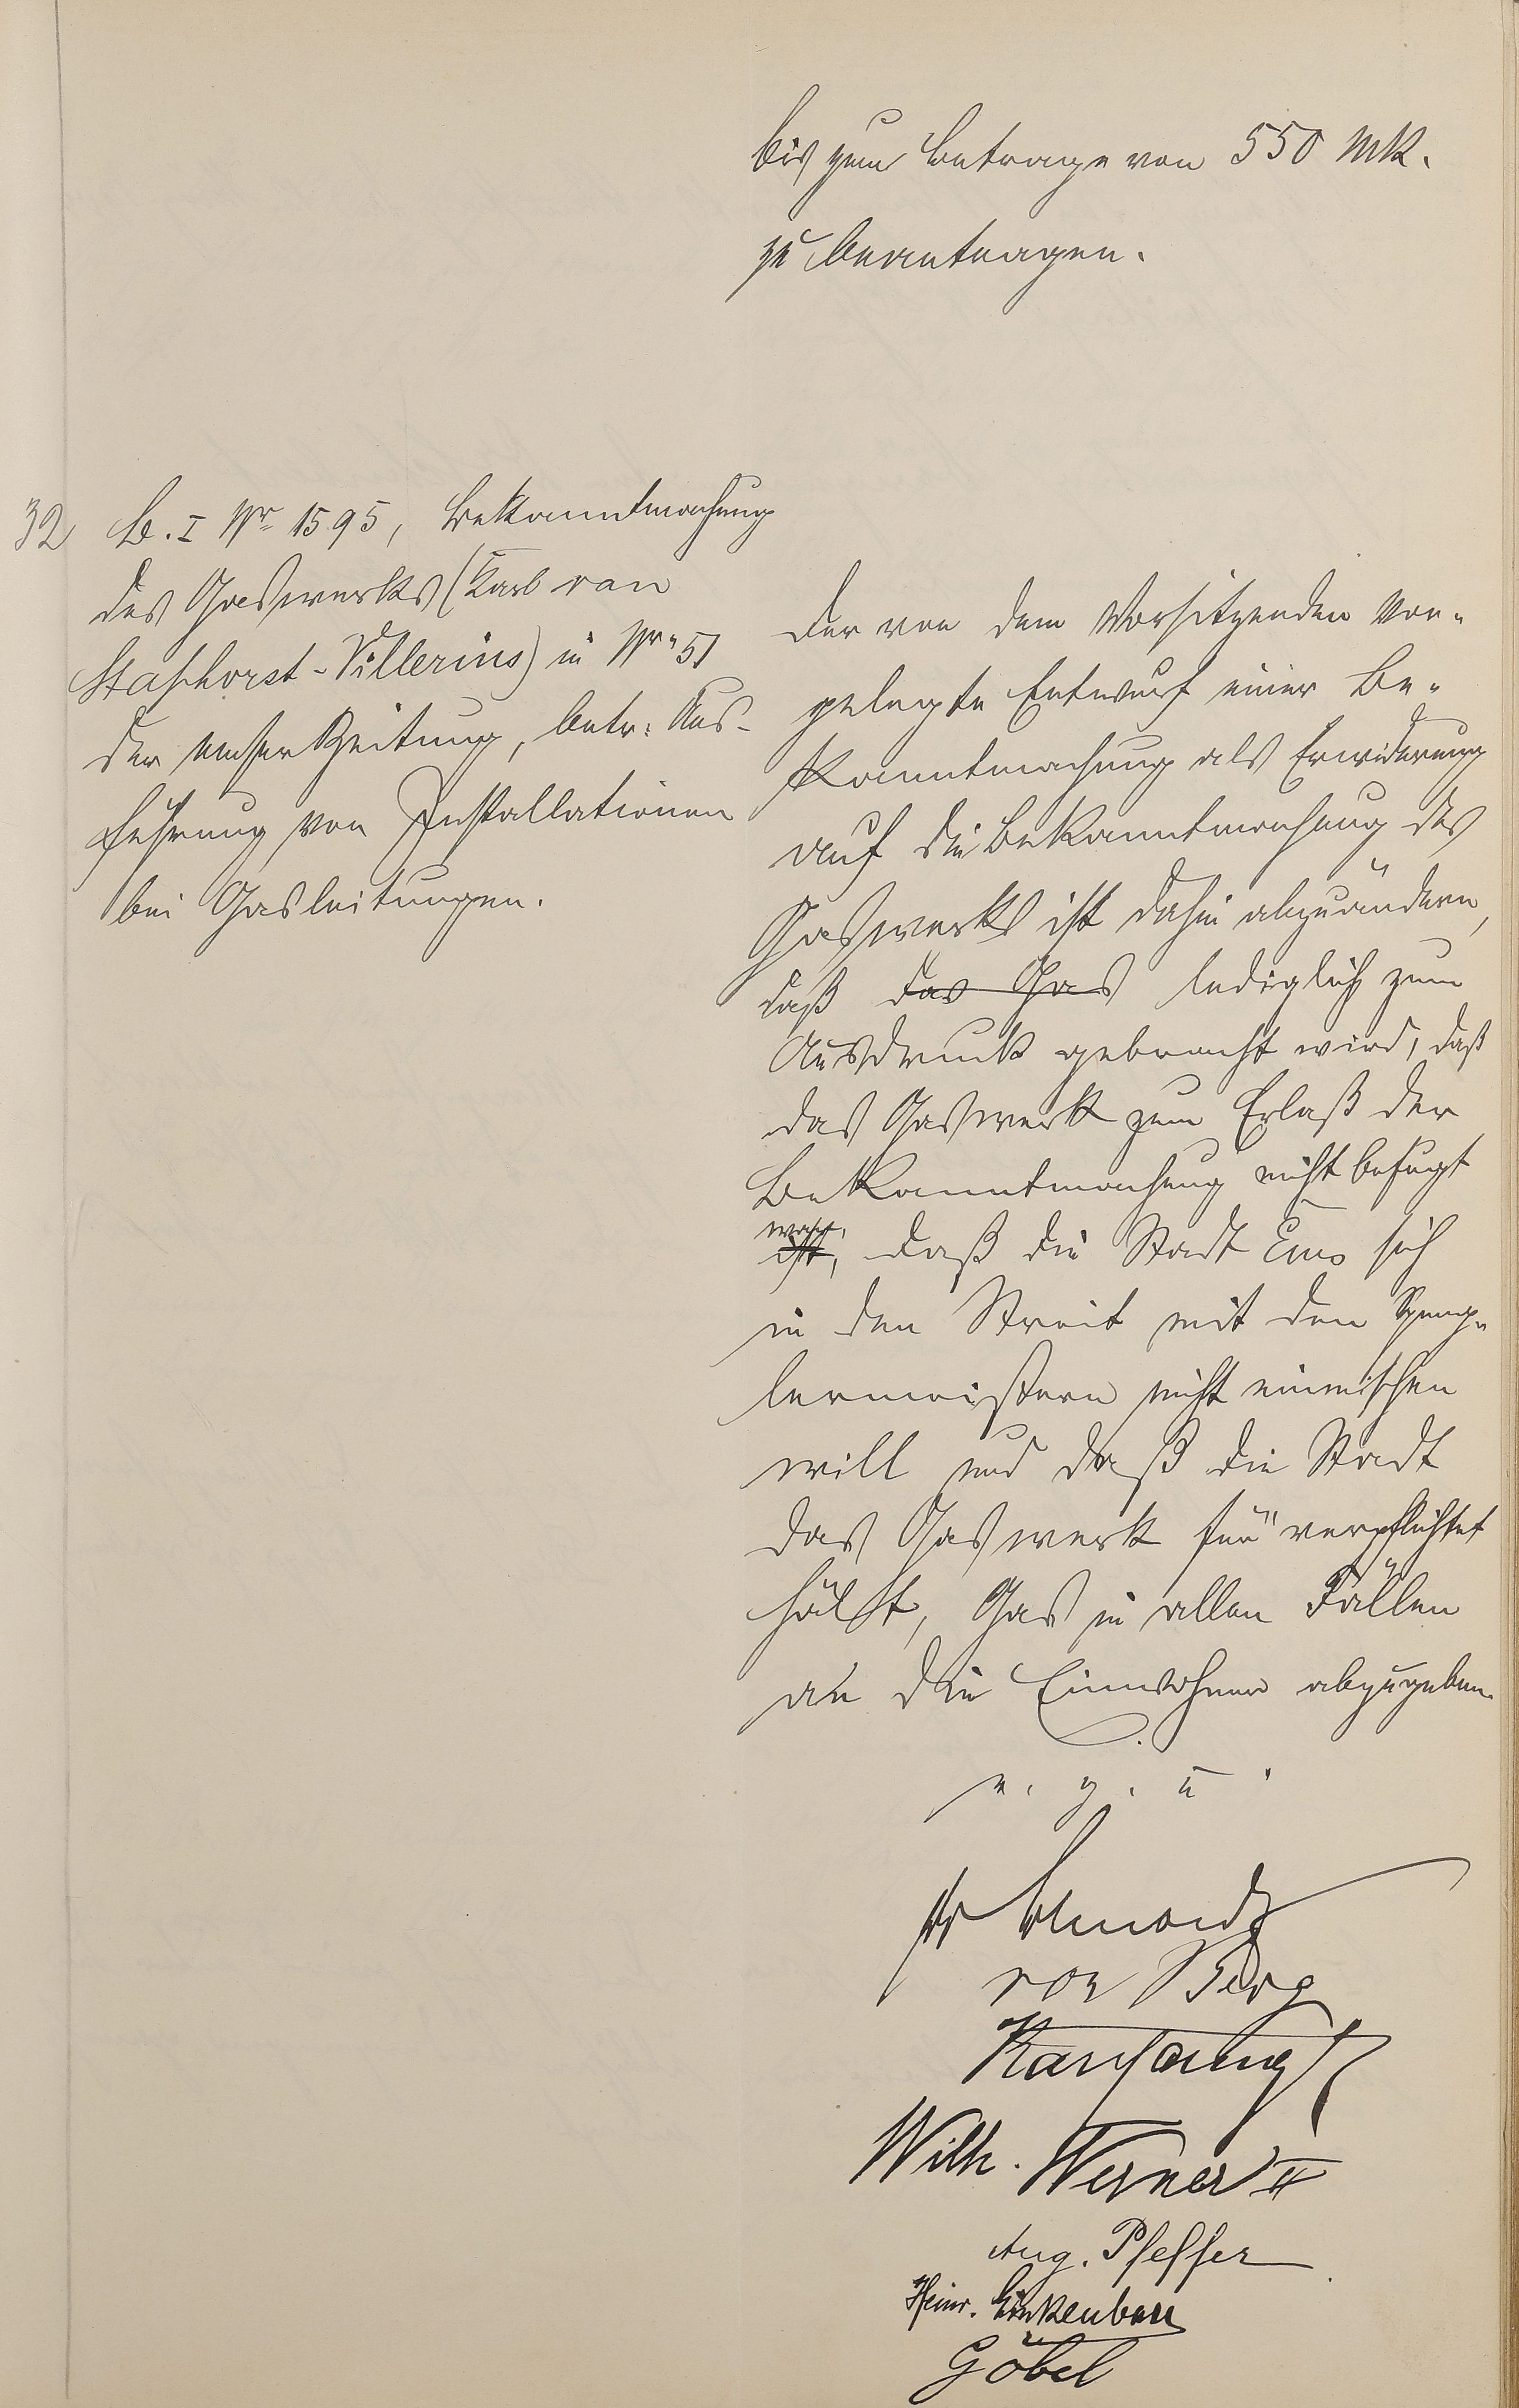 bis zum Betrage von 550 Mk.
zu beantragen.
32 B. I Nr 1595, Bekanntmachung
des Gaswerks (Karl van
Staphorst-Villerius) in Nr. 51
der Emser Zeitung, betr. Aus-
führung von Installationen
bei Gasleitungen.
Der von dem Vorsitzenden vor-
gelegte Entwurf einer Be-
kanntmachung als Erwiderung
auf die Bekanntmachung des
Gaswerks ist dahin abzuändern,
daß das Gas lediglich zum
Ausdruck gebracht wird, daß
das Gaswerk zum Erlaß der
Bekanntmachung nicht befugt
war
ist, daß die Stadt Ems sich
in den Streit mit den Speng-
lermeistern nicht einmischen
will und daß die Stadt
das Gaswerk für verpflichtet
hält, Gas in allen Fällen
an die Einwohner abzugeben.
v. g. u.
von Berg
Wilh. Werner II
Aug. Pfeffer
Heinr. Linkenbach
Göbel